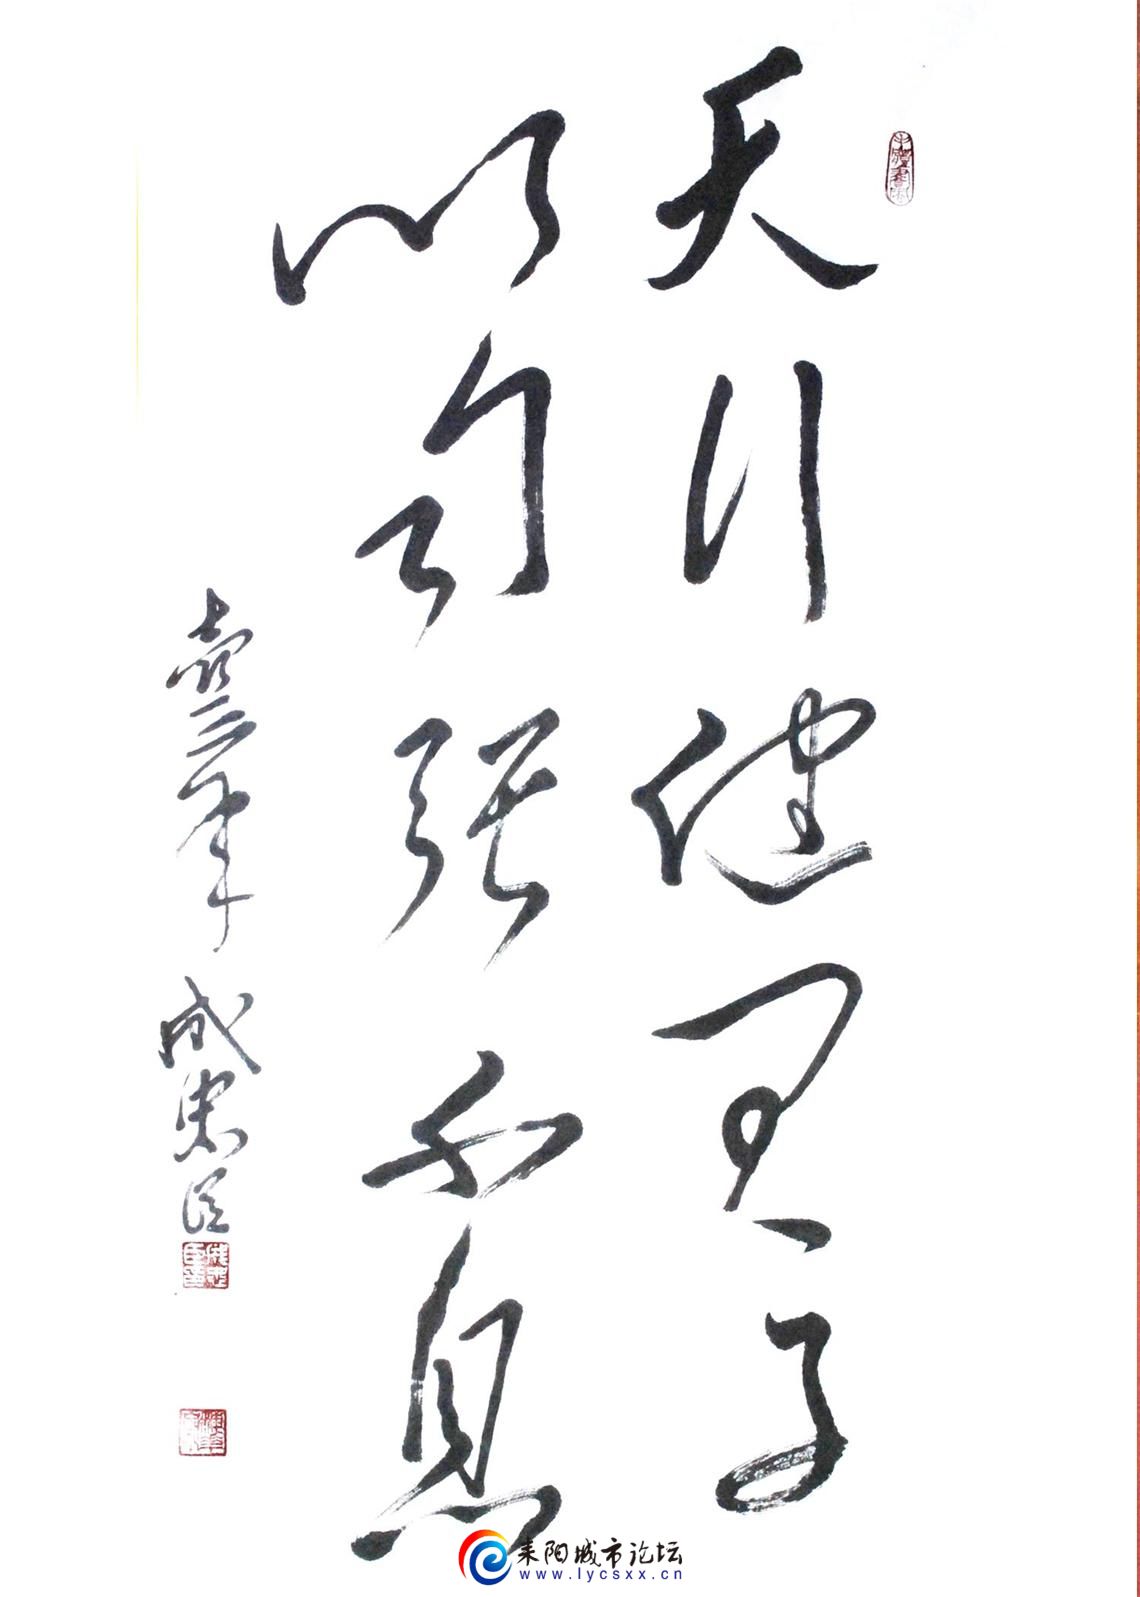 天行健君子
以自强不息
壹三年 成忠臣
耒阳城市论坛
www.lycsxx.cn